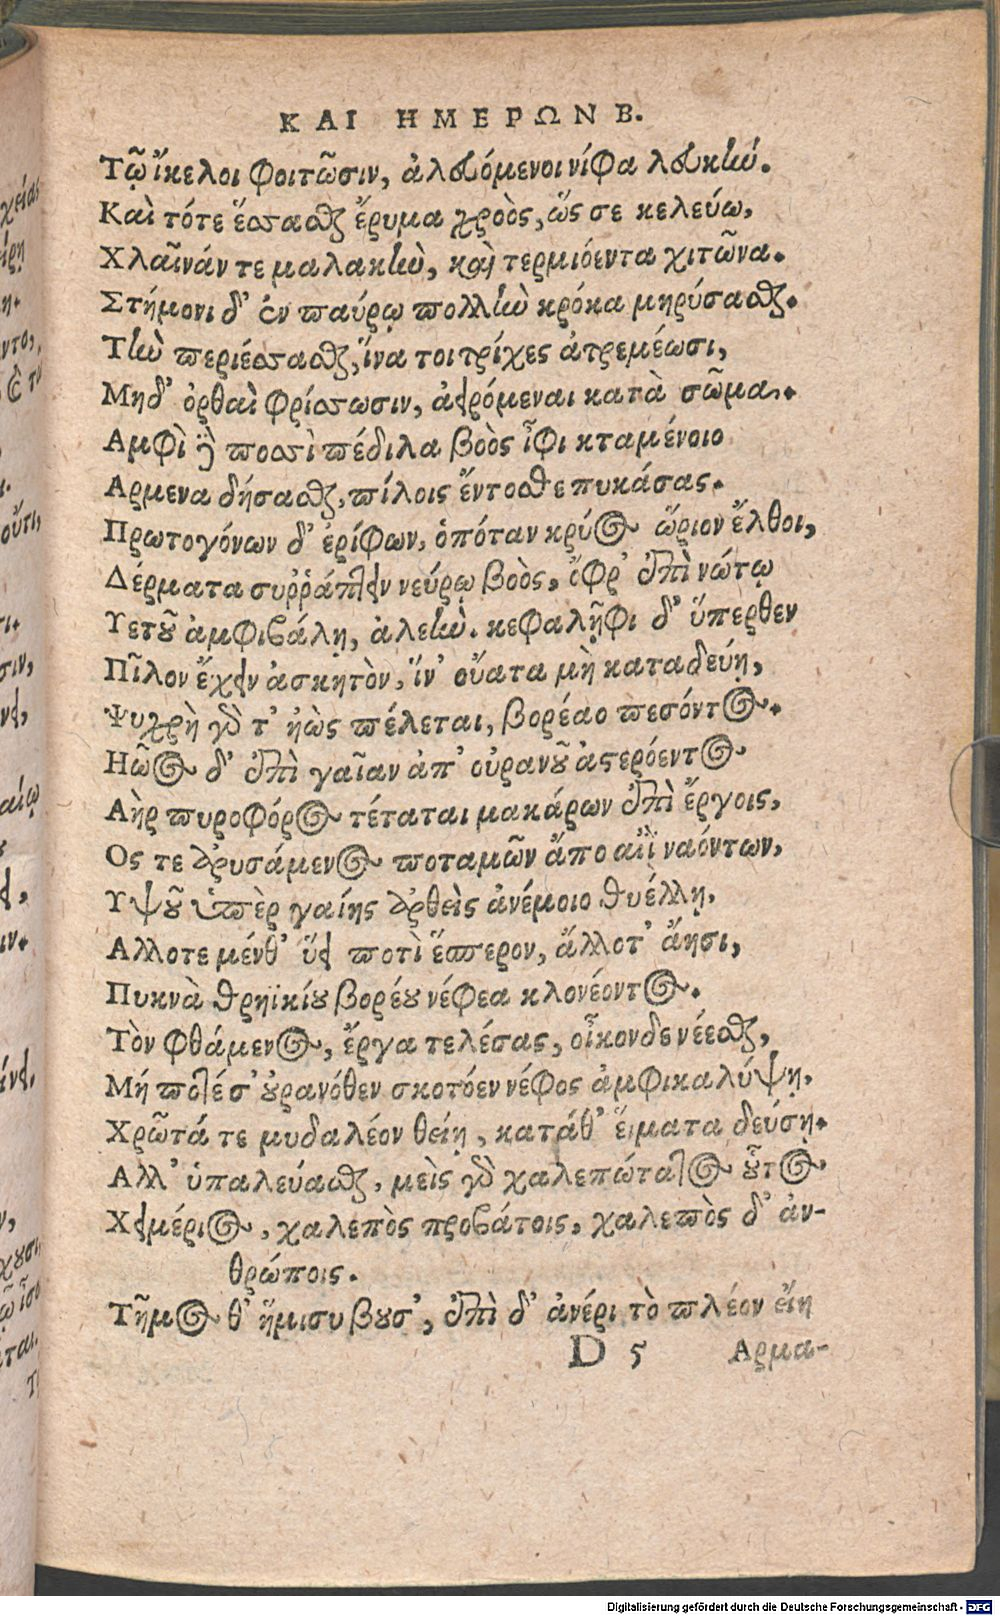 ΚΑΙ ΗΜΕΡΩΝ Β.
Τῷ ἴκελοι φοιτῶσιν, ἀλευόμενοι νίφα λευκήν.
Καὶ τότε ἕσσασθαι ἔρυμα χροὸς, ὥς σε κελεύω,
Χλαῖνάν τε μαλακὴν, καὶ τερμιόεντα χιτῶνα.
Στήμονι δ' ἐν παύρῳ πολλὴν κρόκα μηρύσασθαι.
Τὴν περιέσσασθαι, ἵνα τοι τρίχες ἀτρεμέωσι,
Μηδ' ὀρθαὶ φρίσσωσιν, ἀειρόμεναι κατὰ σῶμα.
Αμφὶ δὲ ποσσὶ πέδιλα βοὸς ἶφι κταμένοιο
Αρμενα δήσασθαι, πίλοις ἔντοσθε πυκάσας.
Πρωτογόνων δ' ἐρίφων, ὁπόταν κρύος ὥριον ἔλθοι,
Δέρματα συῤῥάπτειν νεύρῳ βοὸς, ὄφρ' ἐπὶ νώτῳ
Υετοῦ ἀμφιβάλῃ, ἀλεήν. κεφαλῇφι δ' ὕπερθεν
Πῖλον ἔχειν ἀσκητὸν, ἵν' οὔατα μὴ καταδεύῃ,
Ψυχρὴ γάρ τ' ἠὼς πέλεται, βορέαο πεσόντος.
Ηῶος δ' ἐπὶ γαῖαν ἀπ' οὐρανοῦ ἀστερόεντος
Αὴρ πυροφόρος τέταται μακάρων ἐπὶ ἔργοις,
Ος τε ἀρυσάμενος ποταμῶν ἄπο αἰὲν ναόντων,
Υψοῦ ὑπὲρ γαίης ἀρθεὶς ἀνέμοιο θυέλλῃ,
Αλλοτε μένθ' ὕει ποτὶ ἕσπερον, ἄλλοτ' ἄησι,
Πυκνὰ θρηϊκίου βορέου νέφεα κλονέοντος.
Τὸν φθάμενος, ἔργα τελέσας, οἶκονδε νέεσθαι,
Μή ποτέ σ' οὐρανόθεν σκοτόεν νέφος ἀμφικαλύψῃ,
Χρῶτά τε μυδαλέον θείῃ, κατάθ' εἵματα δεύσῃ.
Αλλ' ὑπαλεύασθαι, μεὶς γὰρ χαλεπώτατος οὗτος,
Χειμέριος, χαλεπὸς προβάτοις, χαλεπὸς δ' ἀν-
θρώποις.
Τῆμος θ' ἥμισυ βουσ', ἐπὶ δ' ἀνέρι τὸ πλέον εἴη
D 5 Αρμα-
Digitalisierung gefördert durch die Deutsche Forschungsgemeinschaft - DFG